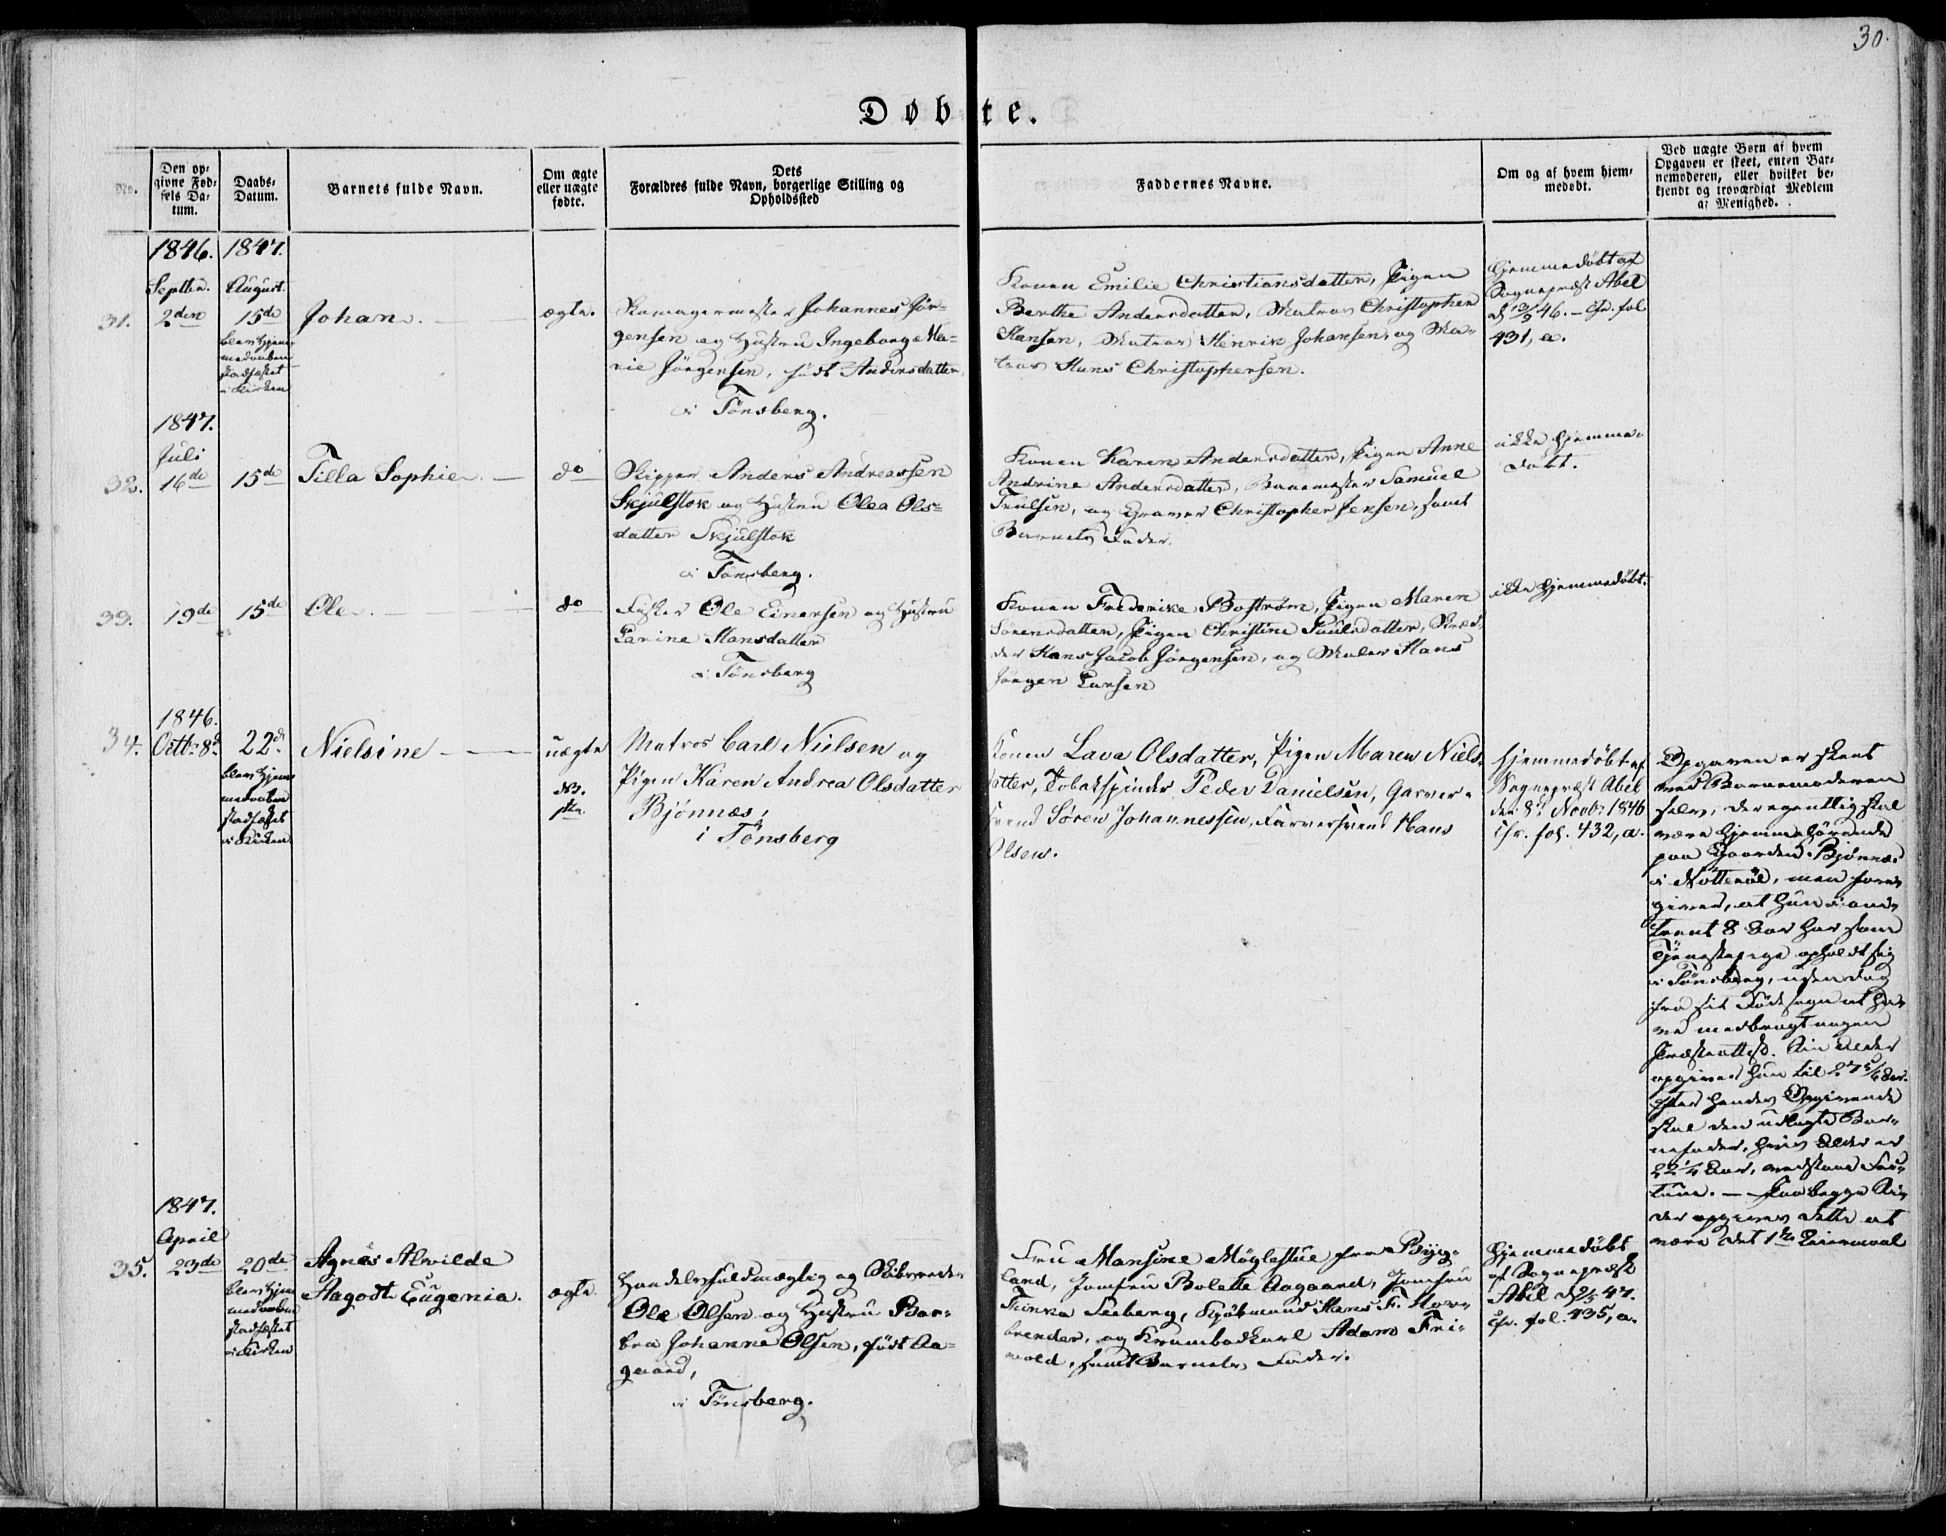 30.
Døbte.
No.
Den op-
givne Fød-
sels Da-
tum.
Daabs-
Datum.
Barnets fulde Navn.
Om ægte
eller uægte
fødte.
Dets
Forældres fulde Navn, borgerlige Stilling og
Opholdssted
Faddernes Navne.
Om og af hvem hjem-
medøbt.
Ved uægte Børn af hvem
Opgaven er skeet, enten Bar-
nemoderen, eller hvilket be-
kjendt og troværdigt Medlem
af Menighed.
1846.
1847.
Septbr.
August.
31.
2den
15de
blev hjem-
medaaben
stadfæstet
i Kirken
Johan.
ægte.
Skomagermester Johannes Jør-
gensen og Hustru Ingeborg Ma-
rie Jørgensen, født Andersdatter
i Tønsberg.
Konen Emilie Christiansdatter, Pigen
Berthe Andersdatter, Matros Christopher
Hansen, Matros Henrik Johansen, og Ma-
tros Hans Christophersen.
Hjemmedøbt af
Sognepræst Abel
d 13/9 46. – Cfr. fol
431, a.
1847.
Juli
32.
16de
15de
Tilla Sophie.
do
Skipper Anders Andreassen
Skjulstok og Hustru Olea Ols-
datter Skjulstok
i Tønsberg.
Konen Karen Andersdatter, Pigen Anne
Andrine Andersdatter, Samuel
Trulsen, og Graver Christopher Jensen, samt
Barnets Fader.
ikke hjemme-
døbt.
33.
19de
15de
Ole.
do
Fisker Ole Einersen og Hustru
Larine Hansdatter
i Tønsberg
Konen Frederike Boström, Pigen Maren
Sørensdatter, Pigen Christine Paulsdatter, Skræd-
der Hans Jacob Jørgensen, og Maler Hans
Jørgen Larsen
ikke hjemmedøbt.
1846.
34.
Octbr 8de
22de
blev hjem-
medaaben
stadfæstet
i Kirken
Nielsine
uægte
NB.
Matros Carl Nielsen og
Pigen Karen Andrea Olsdatter
Bjønnæs,
i Tønsberg
Konen Lava Olsdatter, Pigen Maren Niels-
datter, Tobakspinder Peder Danielsen, Garver-
svend Søren Johannessen, Farversvend Hans
Olsen.
Hjemmedøbt af
Sognepræst Abel
den 8de Novbr 1846
Cfr. fol. 432, a.
Opgaven er skeet
ved Barnemoderen
selv, der egentlig skal
være hjemmehørende
paa Gaarden Bjønnæs
i Nøtterøe, men fore-
giver, at hun i om-
trent 8 Aar har som
Tjenestepige opholdt sig
i Tønsberg, uden dog
fra sit Fødesogn at ha-
ve medbragt nogen
Præsteattest. Sin Alder
opgiver hun til 27 5/6 Aar.
Efter hendes Opgivende
skal den udlagte Bar-
nefader, hvis Alder er
22 1/4 Aar, være
– Paa begge Si-
der opgives dette at
være det 1ste Leiermaal
1847.
April
35.
23de
20de
blev hjem-
medaaben
stadfæstet
i Kirken
Agnes Alvilde
Aagodt Eugenia.
ægte
Handelsfuldmægtig og Skibsreder
Ole Olsen og Hustru Bar-
bra Johanne Olsen, født Aa-
gaard,
i Tønsberg.
Fru Mansine Møglestue fra Byg-
land, Jomfru Bolette Aagaard, Jomfru
Trinka Seeberg, Kjøbmand Hans F.
og Krambodkarl Adam Tri-
vold, samt Barnets Fader.
Hjemmedøbt
af Sognepræst
Abel d 2/5 47.
Cfr. fol. 435, a.